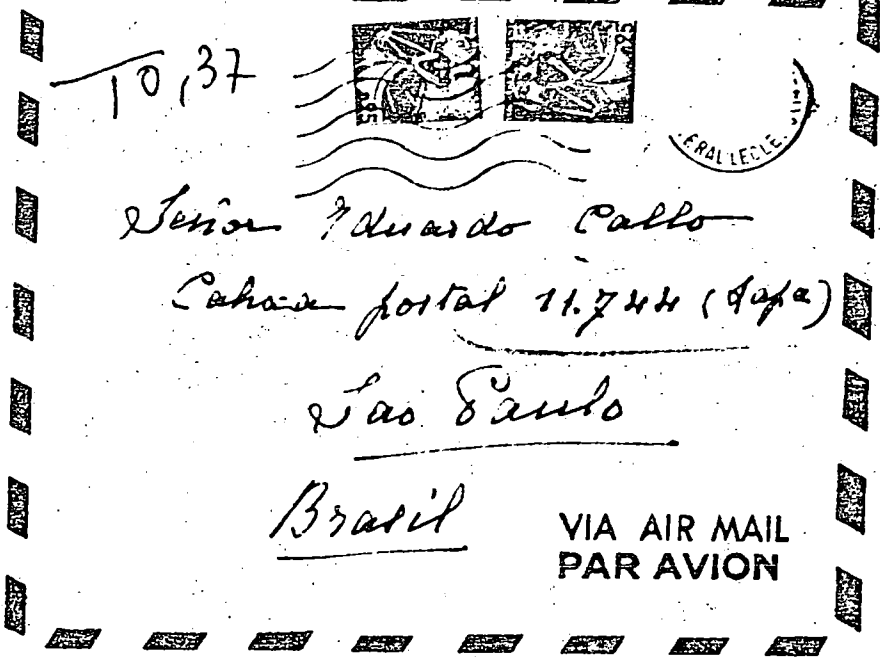 10,37
095
095
ERAL LECLE
Señor Eduardo Callo
Cahoa postal 11.744 (Lapa)
Sao Paulo
Brasil
VIA AIR MAIL
PAR AVION